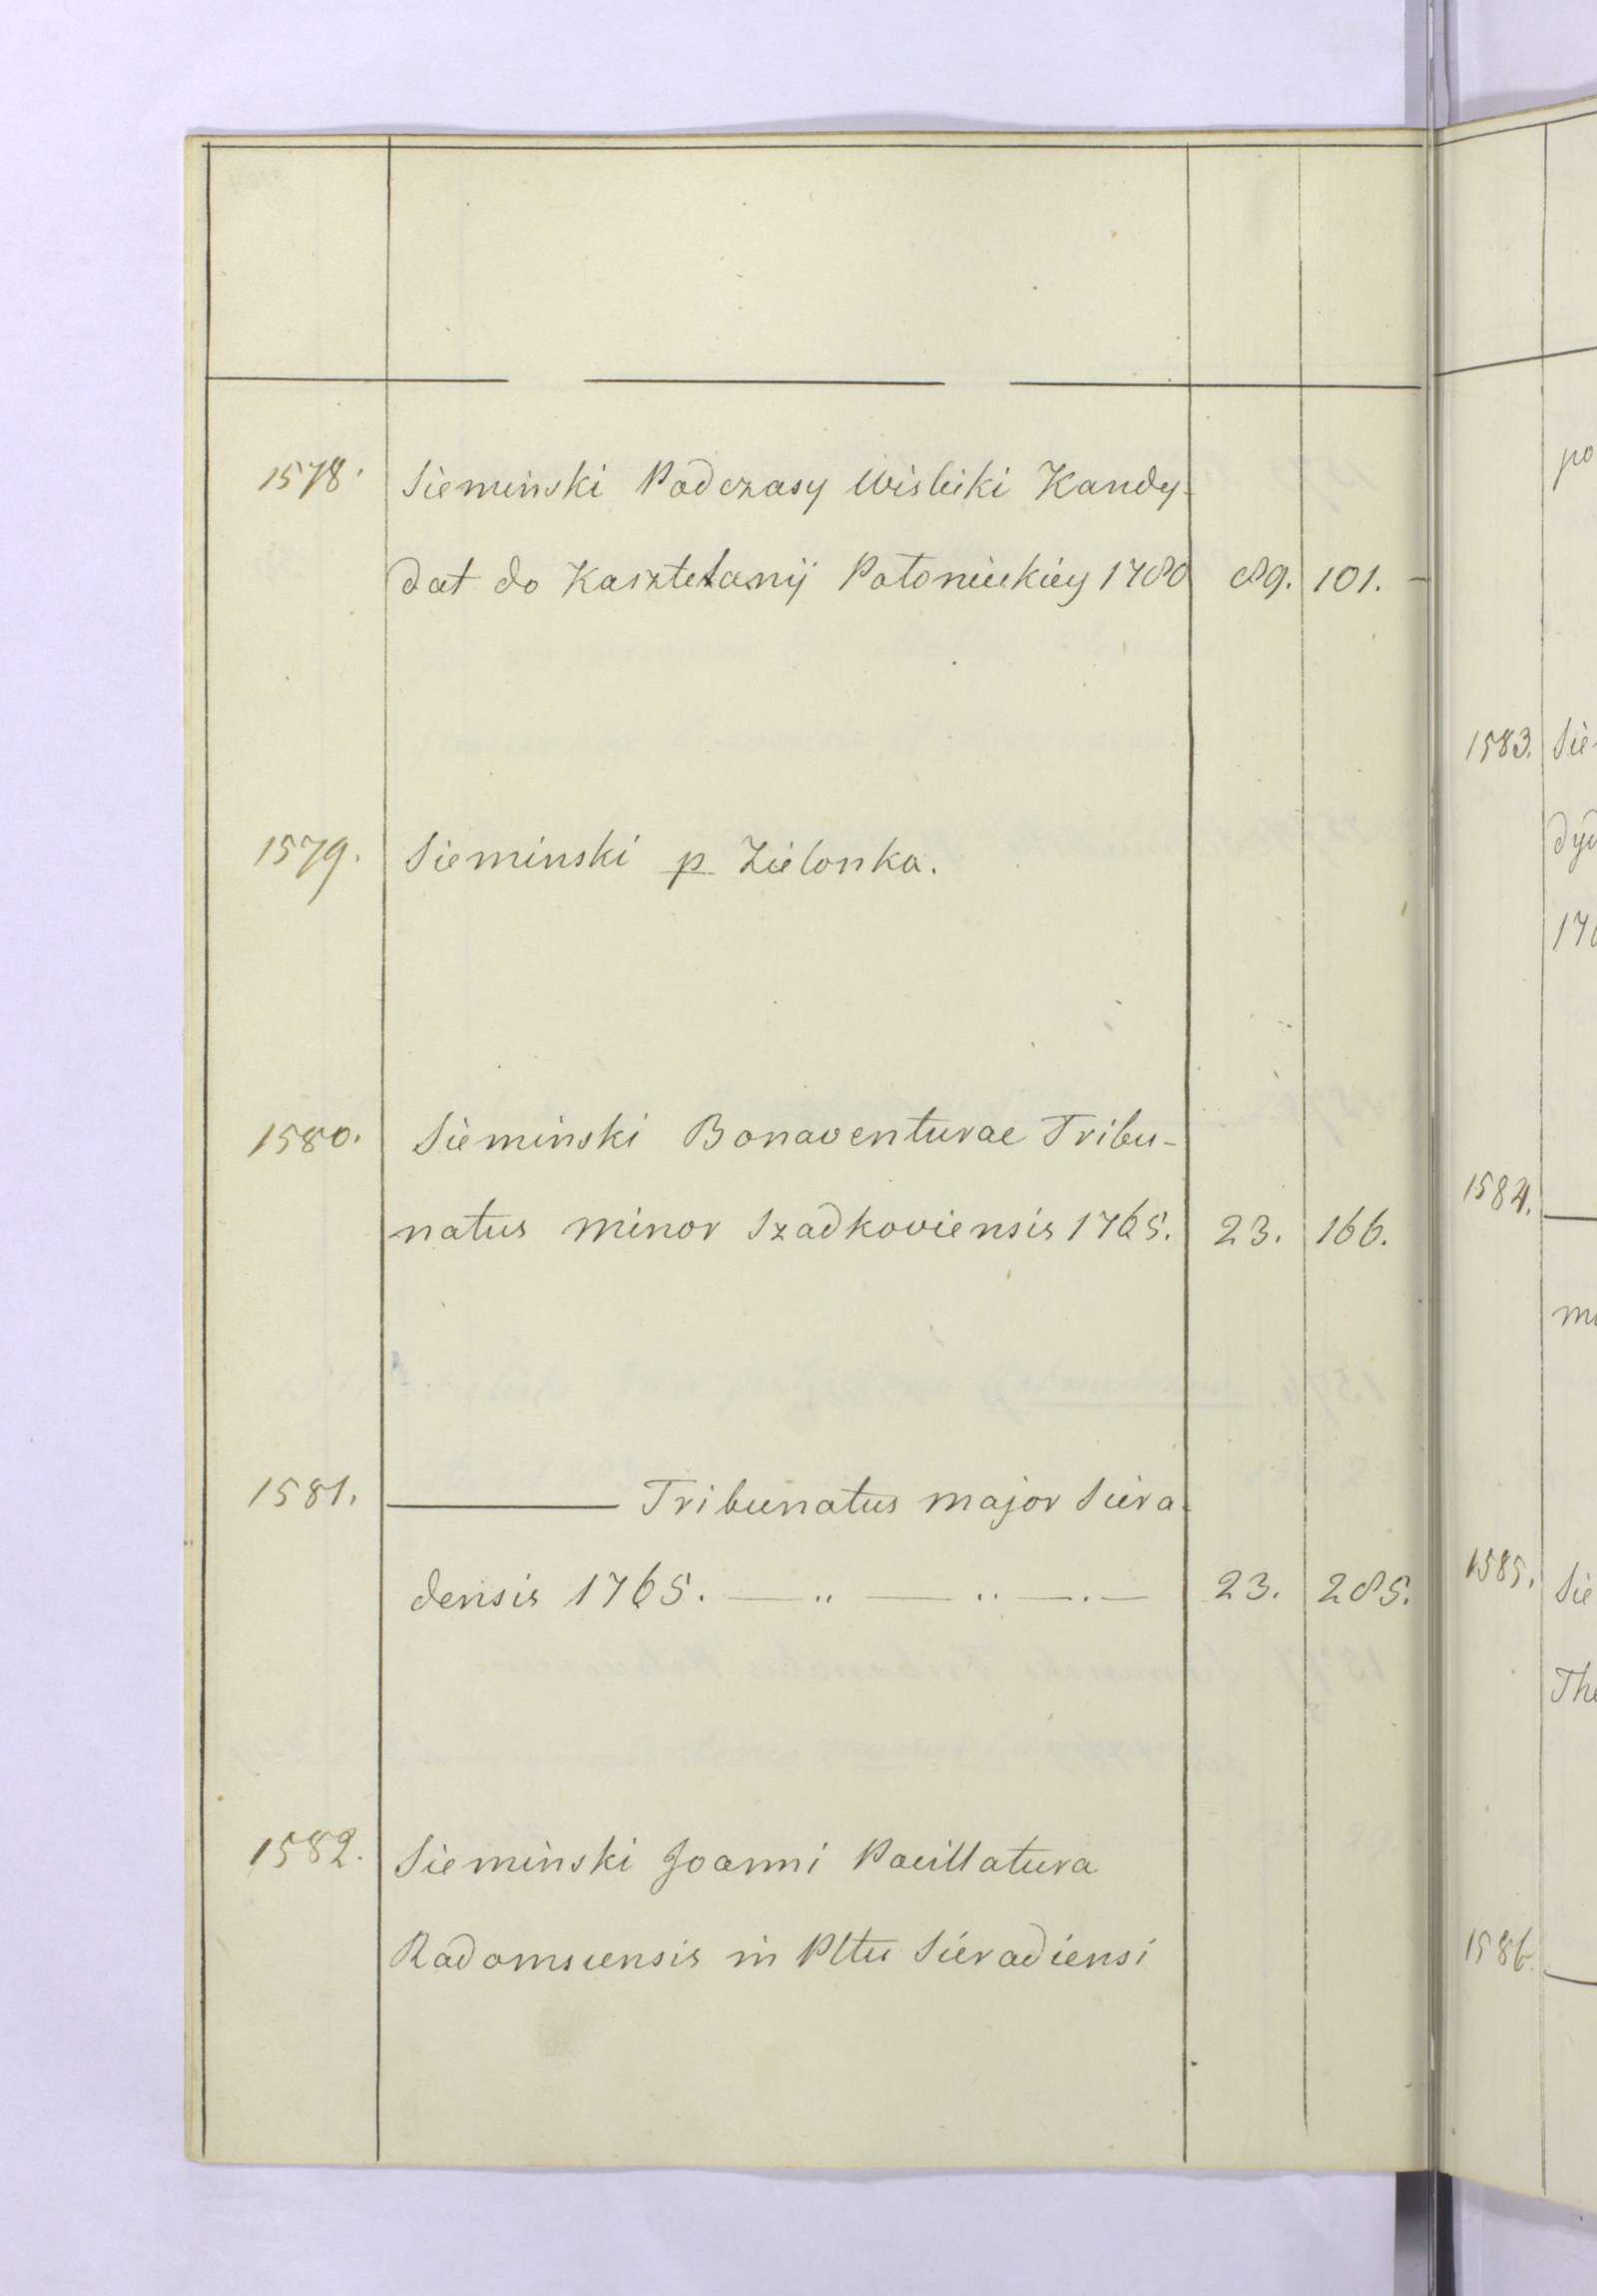 1578. Sieminski Podczasy Wislicki Kandy-
dat do Kasztelanij Połonieckiey 1780 89. 101. -
1579. Sieminski p Zielonka.
1580. Sieminski Bonaventurae Tribu-
natus minor Szadkoviensis 1765. 23. 166.
1581. ——— Tribunatus major Siera-
densis 1765. — .. — .. — . — 23. 285.
1582. Sieminski Joanni Pocillatura
Radomscensis in Pltu Sieradiensi
po
1583. Sie-
dyd
1584.
1585. Sie
The
1586.